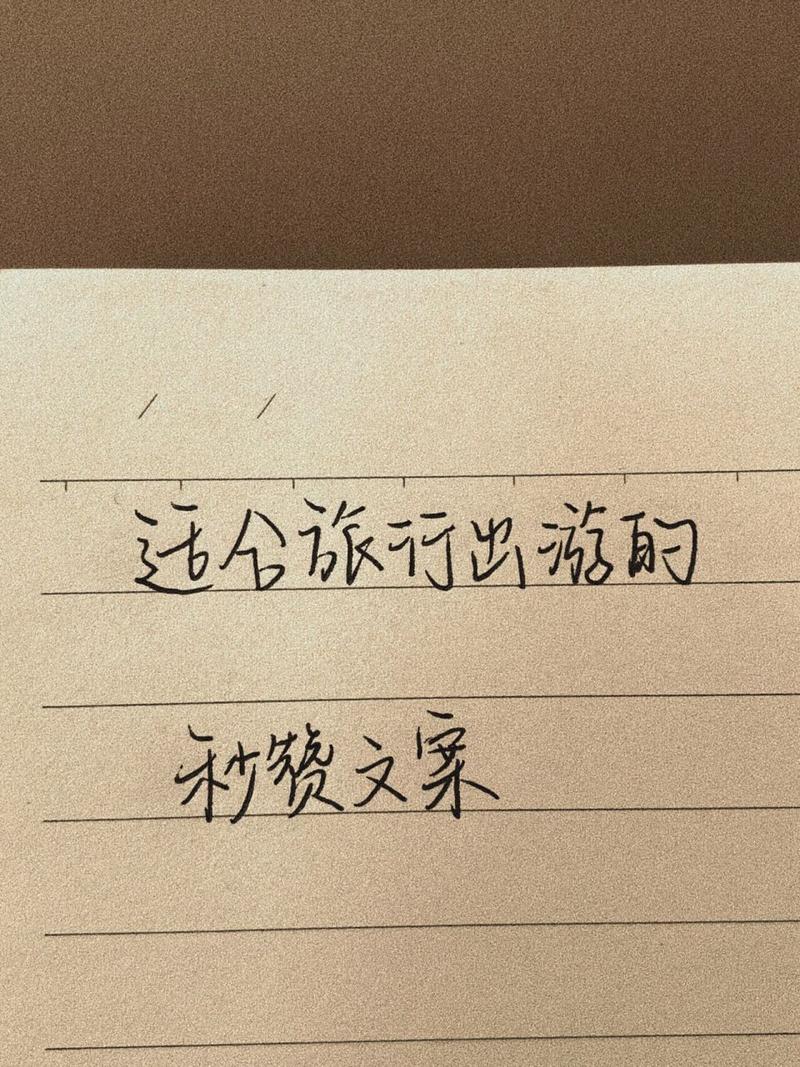 适合旅行出游的
秒赞文案